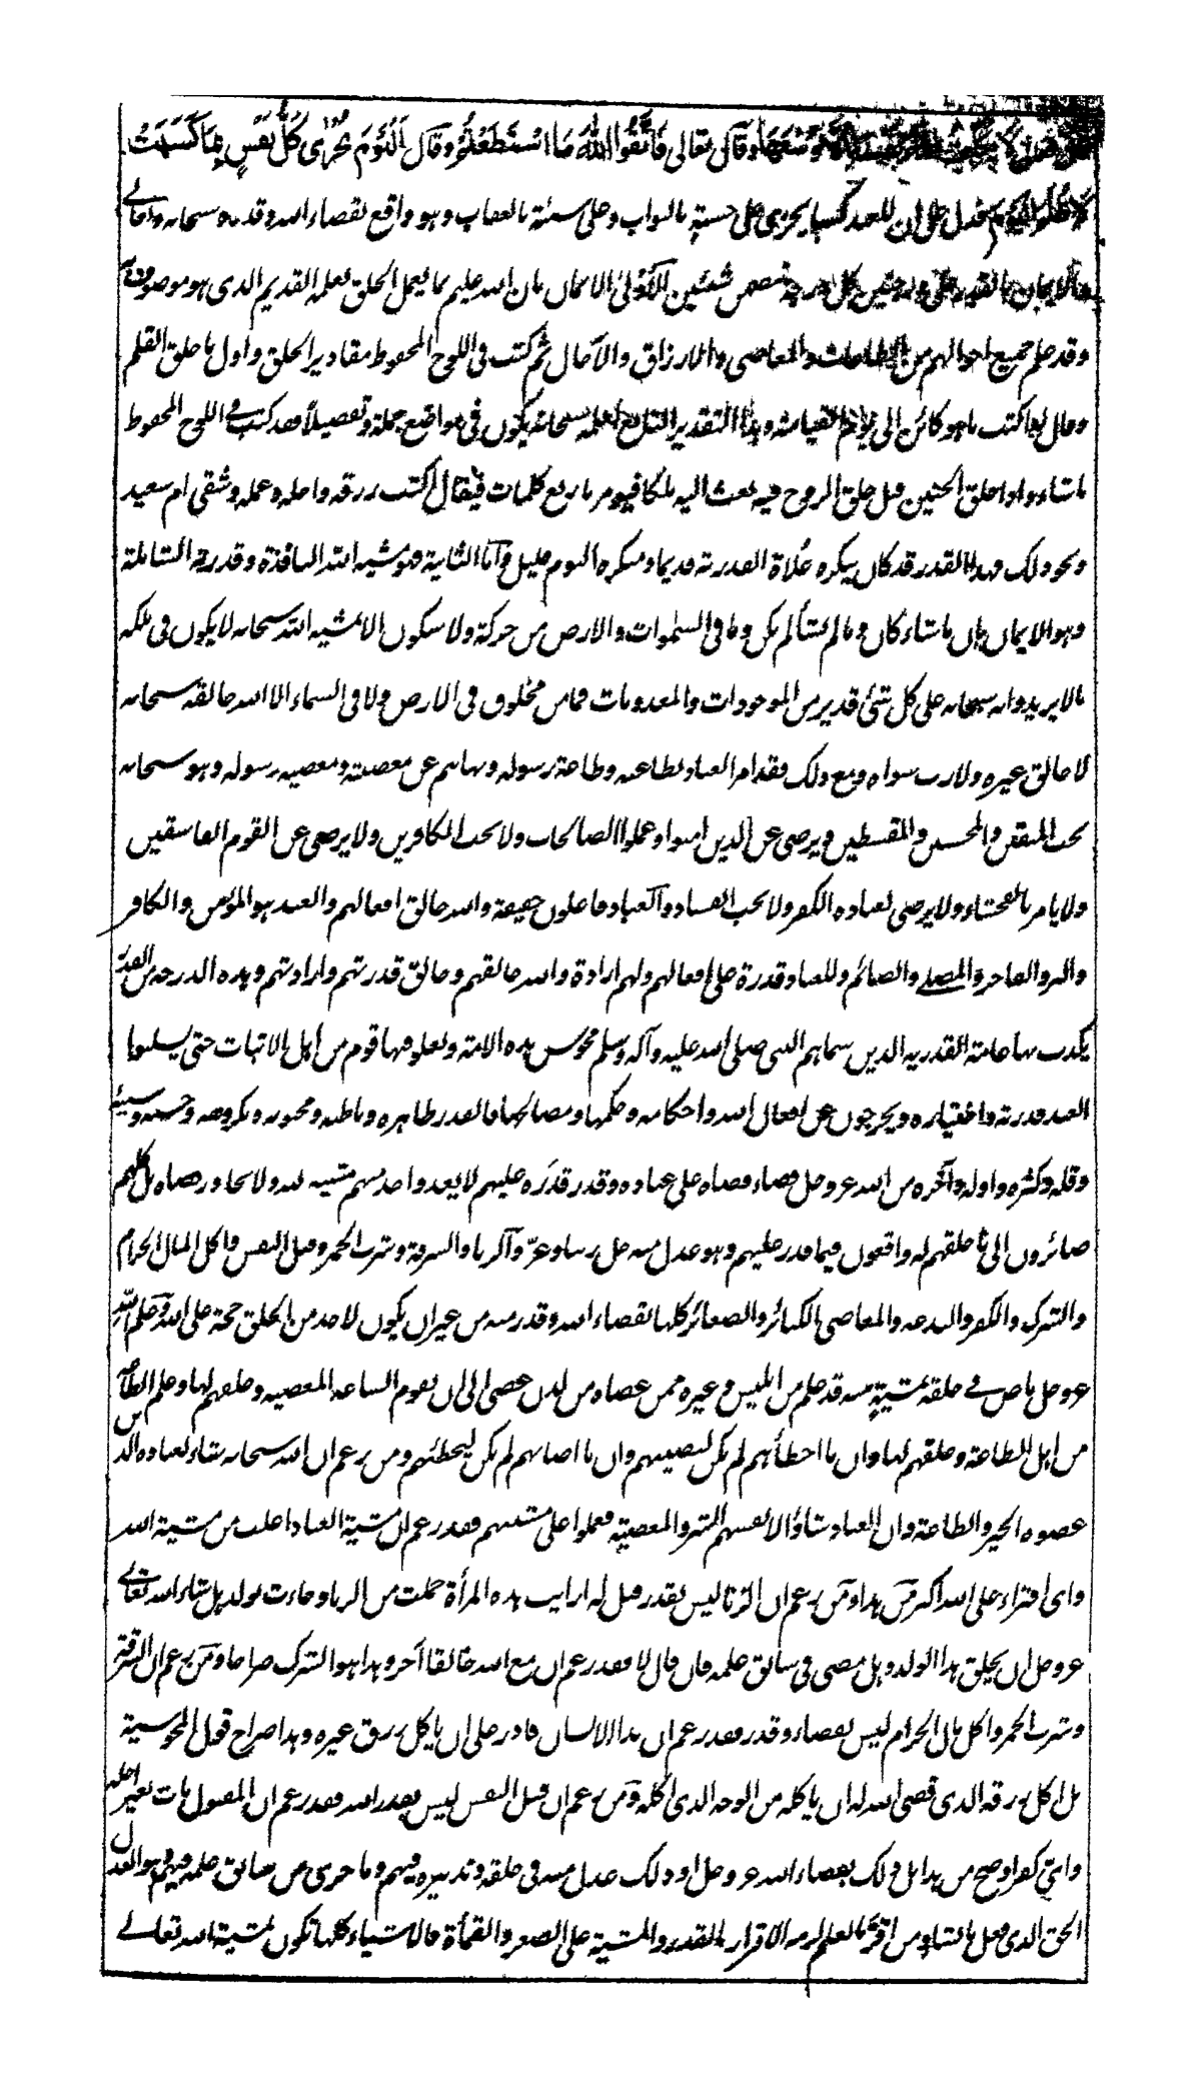 لا يكلف الله نفسا الا وسعها وقال تعالى فَاتَّقُوا اللهَ مَا اسْتَطَعْتُمْ وقال اَلْيَوْمَ تُجْزٰى كُلُّ نَفْسٍ بِمَا كَسَبَتْ
لا ظلم اليوم فدل على ان للعبد كسبا يجزى على حسنة بالثواب وعلى سيئة بالعقاب وهو واقع بقضاء الله وقدره سبحانه وتعالى
والايمان بالقدر على درجتين كل درجة تتضمن شيئين الاولى الايمان بان الله عليم بما يعمل الخلق بعلمه القديم الذى هو موصوف به
وقد علم جميع احوالهم من الطاعات والمعاصى والارزاق والآجال ثم كتب فى اللوح المحفوظ مقادير الخلق واول ما خلق القلم
وقال لها اكتب ما هو كائن الى يوم القيامة وهذا التقدير التابع لعلمه سبحانه يكون فى مواضع جملة وتفصيلا فقد كتب فى اللوح المحفوظ
ما شاء واذا خلق الجنين قبل خلق الروح فيه بعث اليه ملكا فيومر باربع كلمات فيقال اكتب رزقه واجله وعمله وشقى ام سعيد
ونحو ذلك فهذا القدر قد كان ينكره غلاة القدرية قديما ومنكره اليوم قليل واما الثانية فهو مشية الله النافذة وقدرته الشاملة
وهو الايمان بان ما شاء كان وما لم يشأ لم يكن وما فى السموات والارض من حركة ولا سكون الا بمشية الله سبحانه لا يكون فى ملكه
ما لا يريد وانه سبحانه على كل شئ قدير من الموجودات والمعدومات فما من مخلوق فى الارض ولا فى السماء الا الله خالقه سبحانه
لا خالق غيره ولا رب سواه ومع ذلك فقد امر العباد بطاعته وطاعة رسوله ونهاهم عن معصيته ومعصية رسوله وهو سبحانه
يحب المتقين والمحسنين والمقسطين ويرضى عن الذين امنوا وعملوا الصالحات ولا يحب الكافرين ولا يرضى عن القوم الفاسقين
ولا يامر بالفحشاء ولا يرضى لعباده الكفر ولا يحب الفساد والعباد فاعلون حقيقة والله خالق افعالهم والعبد هو المؤمن والكافر
والبر والفاجر والمصلے والصائم وللعباد قدرة على افعالهم ولهم ارادة والله خالقهم وخالق قدرتهم وارادتهم وهذه الدرجة من القدر
يكذب بها عامة القدرية الذين سماهم النبى صلى الله عليه وآله وسلم مجوس هذه الامة ويغلو فيها قوم من اهل الاثبات حتى يسلبوا
العبد قدرته واختياره ويخرجون عن افعال الله واحكامه وحكمها ومصالحها فالقدر ظاهره وباطنه ومحبوبه ومكروهه وحسنه وسيئه
وقله وكثره واوله وآخره من الله عز وجل قضاء قضاه على عباده وقدر قدره عليهم لا يعدو احد منهم مشية الله ولا يجاوز قضاه بل كلهم
صائرون الى ما خلقهم له واقعون فيما قدر عليهم وهو عدل منه جل ربنا وعز والزنا والسرقة وشرب الخمر وقتل النفس واكل المال الحرام
والشرك والكفر والبدعة والمعاصى الكبائر والصغائر كلها بقضاء الله وقدر منه من غير ان يكون لاحد من الخلق حجة على الله وعلم الله
عز وجل ماض فے خلقه بمشية منه قد علم من ابليس وغيره ممن عصاه من لدن عصى الى ان تقوم الساعة المعصية وخلقهم لها وعلم الطاعة
من اهل الطاعة وخلقهم لها وان ما اخطأهم لم يكن ليصيبهم وان ما اصابهم لم يكن ليخطئهم ومن زعم ان الله سبحانه شاء لعباده الذين
عصوه الخير والطاعة وان العباد شاؤا لانفسهم الشر والمعصية فعملوا على مشيتهم فقد زعم ان مشية العباد اغلب من مشية الله
واى افتراء على الله اكبر من هذا ومن زعم ان الزنا ليس بقدر قيل له ارايت هذه المرأة حملت من الزنا وجاءت بولد هل شاء الله تعالے
عز وجل ان يخلق هذا الولد وهل مضى فى سابق علمه فان قال لا فقد زعم ان مع الله خالقا آخر وهذا هو الشرك صراحا ومن زعم ان السرقة
وشرب الخمر واكل مال الحرام ليس بقضاء وقدر فقد زعم ان هذا الانسان قادر على ان ياكل رزق غيره وهذا صراح قول المجوسية
بل اكل رزقه الذى قضى الله له ان ياكله من الوجه الذى اكله ومن زعم ان قتل النفس ليس بقدر الله فقد زعم ان المقتول مات بغير اجله
واى كفر اوضح من هذا بل ذلك بقضاء الله عز وجل وذلك عدل منه فى خلقه وتدبيره فيهم وما جرى من سابق علمه فيهم وهو العدل
الحق الذى يفعل ما يشاء ومن اقر بالعلم لزمه الاقرار بالقدر والمشية على الصغر والقمأة فالاشياء كلها تكون بمشية الله تعالے